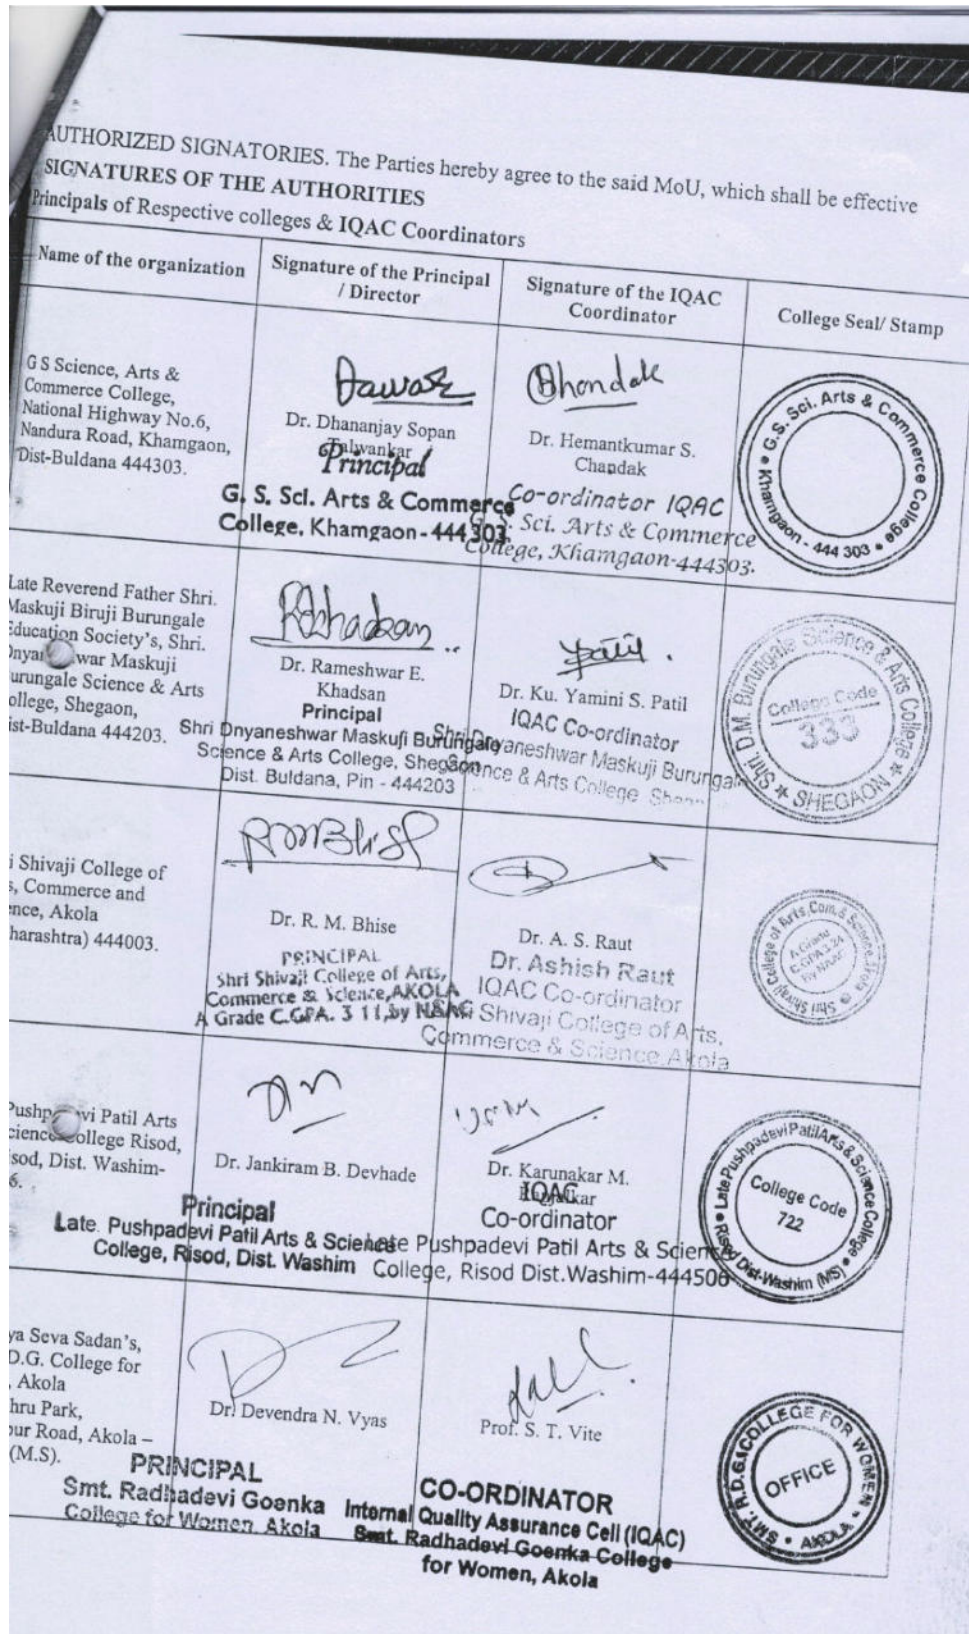 AUTHORIZED SIGNATORIES. The Parties hereby agree to the said MoU, which shall be effective
SIGNATURES OF THE AUTHORITIES
Principals of Respective colleges & IQAC Coordinators
Name of the organization
Signature of the Principal
/ Director
Signature of the IQAC
Coordinator
College Seal/ Stamp
G S Science, Arts &
Commerce College,
National Highway No.6,
Nandura Road, Khamgaon,
Dist-Buldana 444303.
Dr. Dhananjay Sopan
Talwankar
Principal
G. S. Sci. Arts & Commerce
College, Khamgaon - 444 303.
Chandak
Dr. Hemantkumar S.
Chandak
Co-ordinator IQAC
G. S. Sci. Arts & Commerce
College, Khamgaon-444303.
G.S. Sci. Arts & Commerce College
Khamgaon - 444 303
Late Reverend Father Shri.
Maskuji Biruji Burungale
Education Society's, Shri.
war Maskuji
urungale Science & Arts
ollege, Shegaon,
ist-Buldana 444203.
Dr. Rameshwar E.
Khadsan
Principal
Shri Dnyaneshwar Maskuji Burungale
Science & Arts College, Shegaon
Dist. Buldana, Pin - 444203
Patil
Dr. Ku. Yamini S. Patil
IQAC Co-ordinator
Shri Dnyaneshwar Maskuji Burungale
Science & Arts College
Shri. D.M. Burungale Science & Arts College
SHEGAON
College Code
333
i Shivaji College of
s, Commerce and
ence, Akola
harashtra) 444003.
RMBhise
Dr. R. M. Bhise
PRINCIPAL
Shri Shivaji College of Arts,
Commerce & Science, AKOLA
A Grade C.GPA. 3 11, by NAAC
Dr. A. S. Raut
Dr. Ashish Raut
IQAC Co-ordinator
Shivaji College of Arts,
Commerce & Science, Akola
Shri Shivaji College of Arts, Com. & Science, Akola
A Grade
C-GPA 3.24
By NAAC
vi Patil Arts
cience College Risod,
sod, Dist. Washim-
6.
Dr. Jankiram B. Devhade
Principal
Late. Pushpadevi Patil Arts & Science
College, Risod, Dist. Washim
Dr. Karunakar M.
IQAC
Co-ordinator
Late Pushpadevi Patil Arts & Science
College, Risod Dist.Washim-444506
Late Pushpadevi Patil Arts & Science College
Risod Dist-Washim (MS)
College Code
722
ya Seva Sadan's,
D.G. College for
, Akola
hru Park,
ur Road, Akola –
(M.S).
Dr. Devendra N. Vyas
PRINCIPAL
Smt. Radhadevi Goenka
College for Women, Akola
Prof. S. T. Vite
CO-ORDINATOR
Internal Quality Assurance Cell (IQAC)
Smt. Radhadevi Goenka College
for Women, Akola
SMT. R.D.G. COLLEGE FOR WOMEN
AKOLA
OFFICE